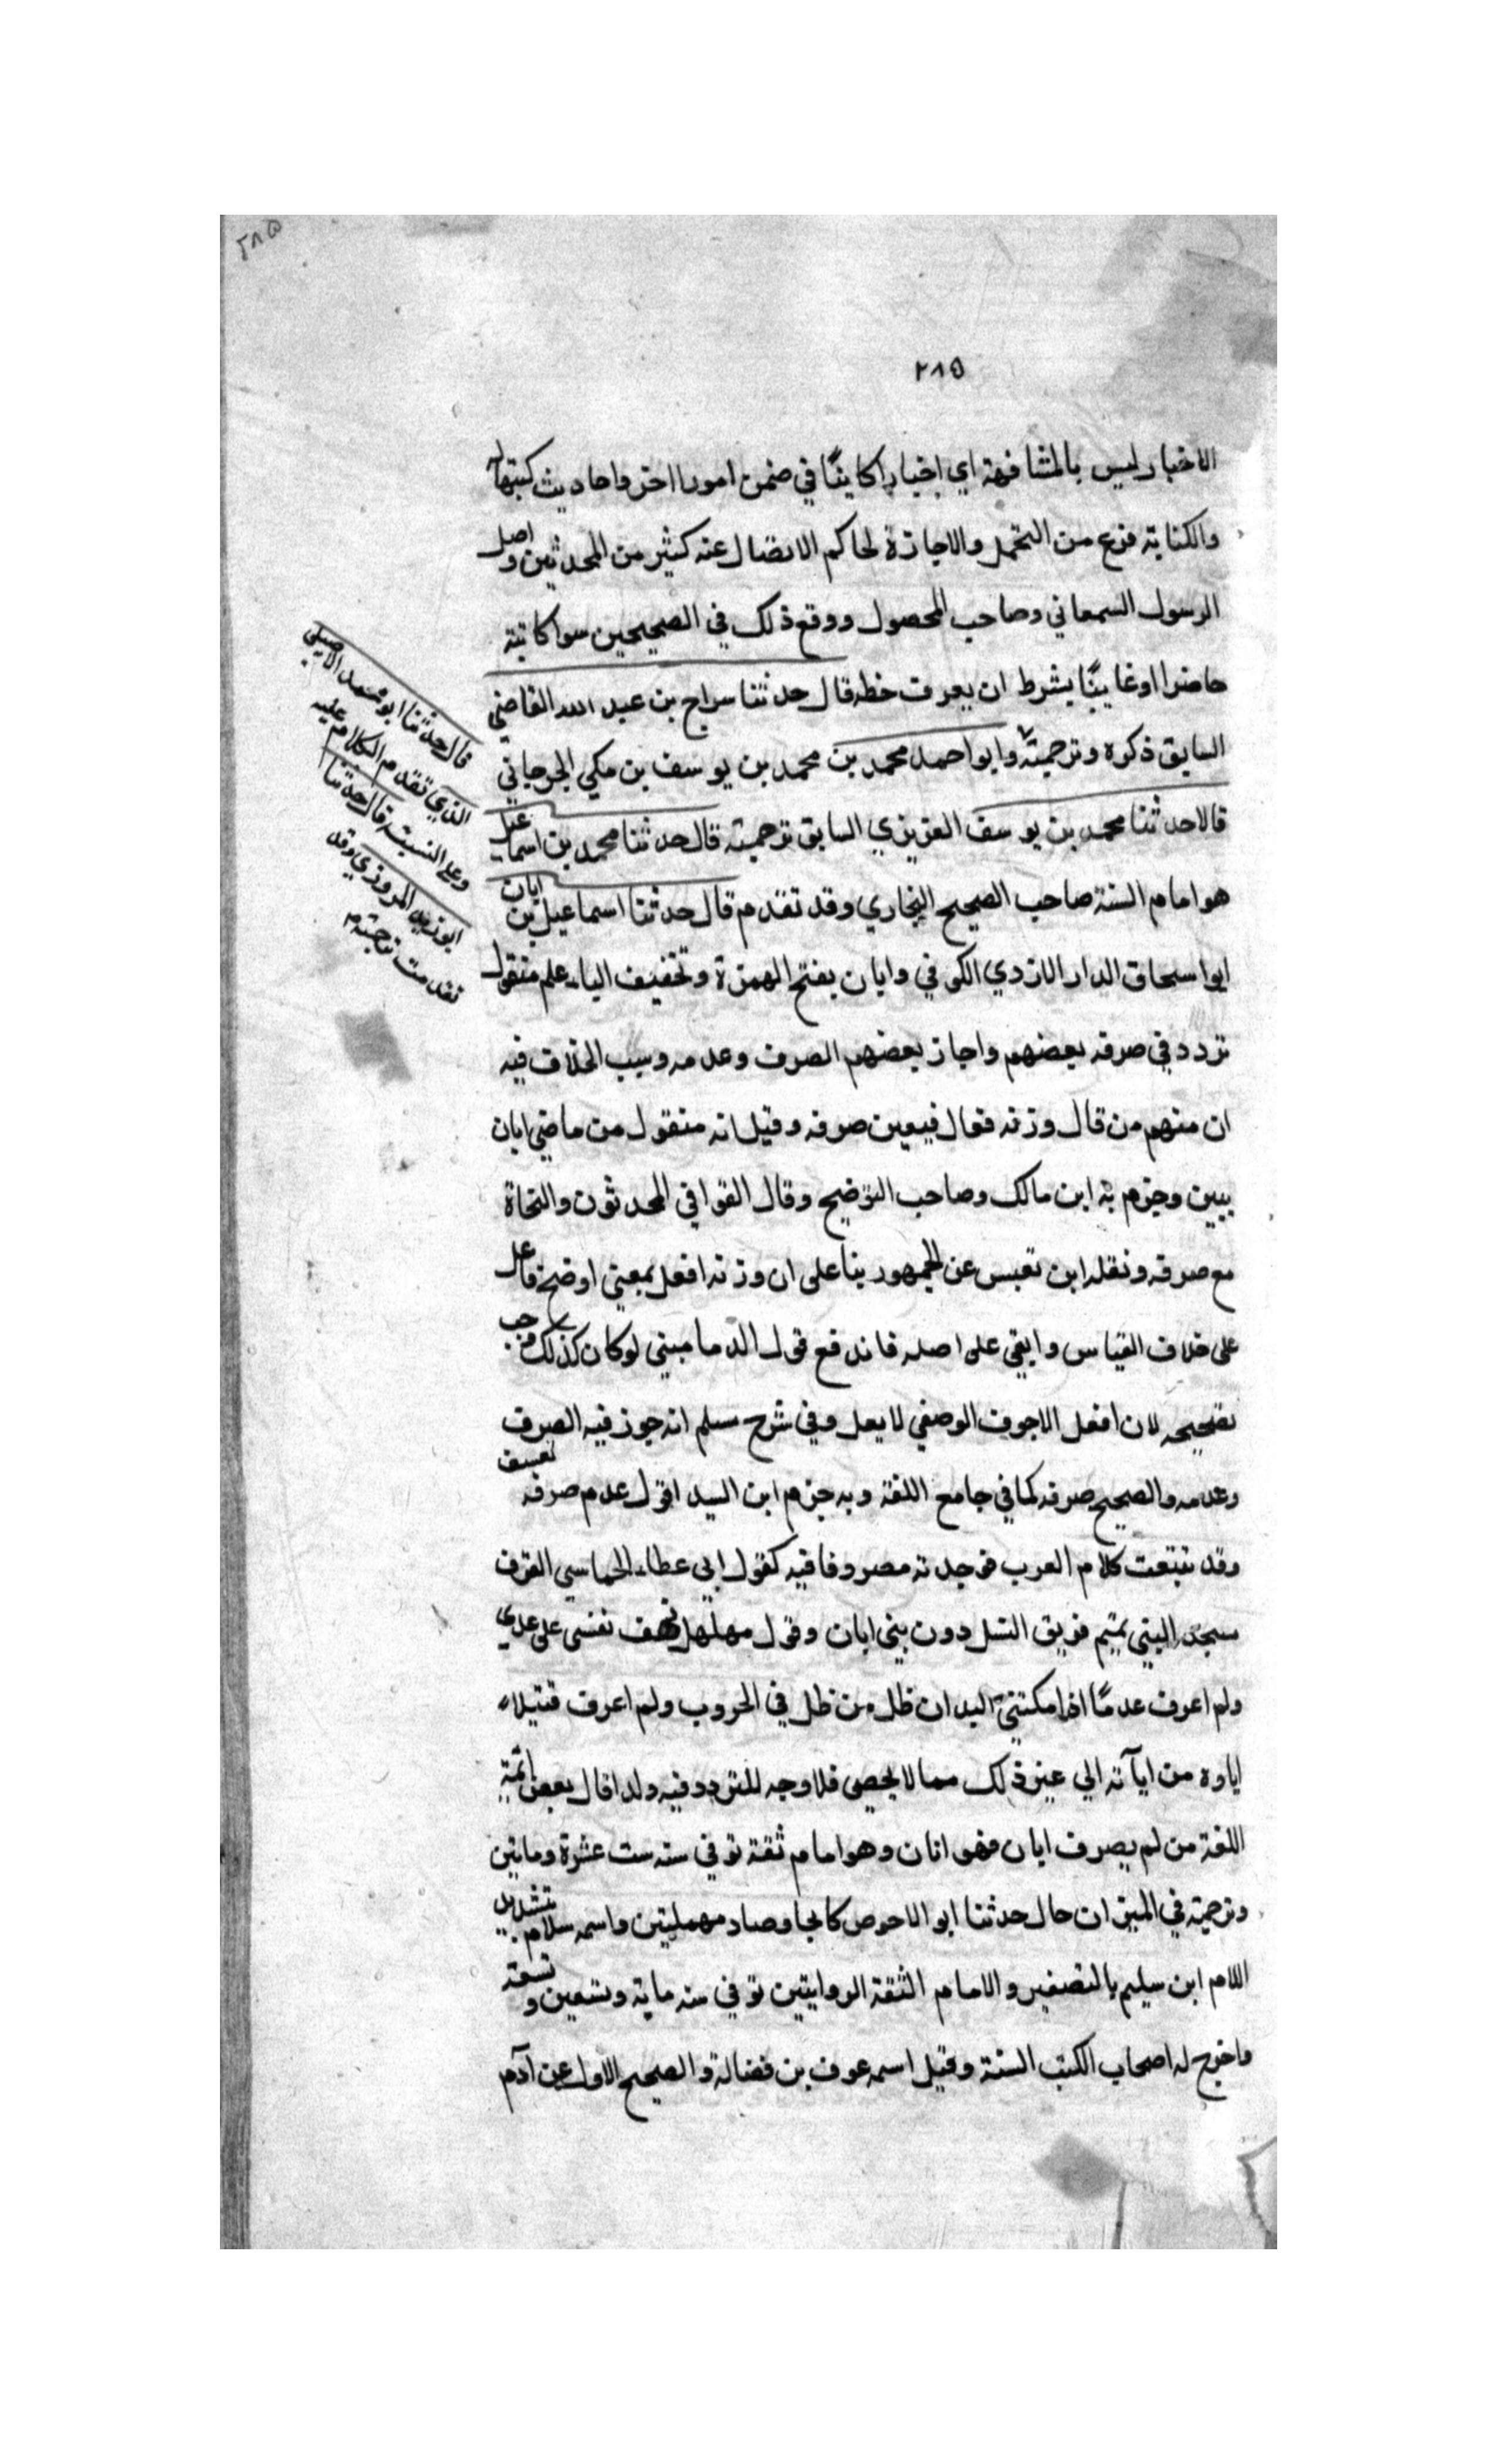 ٢٨٥
٢٨٥
الاخبار ليس بالمشافهة اي اخبارا كاينًا في ضمن امور اخر واحاديث كتبها
والكتابة فرع من التحمل والاجازة لها كم الاتصال عند كثير من المحدثين واصل
الرسول السمعاني وصاحب المحصول ووقع ذلك في الصحيحين سوا كاتبه
حاضرا او غايبًا بشرط ان يعرف خطه قال حدثنا سراج بن عبد الله القاضي
السابق ذكره وترجمته وابو احمد محمد بن محمد بن يوسف بن مكي الجرجاني
قالا حدثنا محمد بن يوسف العزيزي السابق ترجمته قال حدثنا محمد بن اسماعيل
هو امام السنة صاحب الصحيح البخاري وقد تقدم قال حدثنا اسماعيل بن ابان
ابو اسحاق الدار الازدي الكوفي وابان بفتح الهمزة وتخفيف الباء علم منقول
تردد في صرفه بعضهم واجاز بعضهم الصرف وعدمه وسبب الخلاف فيه
ان منهم من قال وزنه فعال فيعين صرفه وقيل انه منقول من ماضي ابان
يبين وجزم به ابن مالك وصاحب التوضيح وقال القرافي المحدثون والنحاة
مع صرفه ونقله ابن تعيس عن الجمهور بنا على ان وزنه افعل بمعني اوضح فاعل
على خلاف القياس وابقي على اصله فاندفع قول الدماميني لو كان كذلك وجب
تصحيحه لان افعل الاجوف الوصفي لا يعل وفي شرح مسلم انه جوز فيه الصرف
وعدمه والصحيح صرفه كما في جامع اللغة وبه جزم ابن السيد اقول عدم صرفه تعسف
وقد تتبعت كلام العرب فوجدته مصروفا فيه كقول ابي عطاء الحماسي
البيتي تميم فريق دون بني ابان وقول مهلهل نفسي على عدي
ولم اعرف عدمًا اذ امكنتني اليدان ظل من ظل في الحروب ولم اعرف قتيلا
اباوه من ابآنه الي غير ذلك مما لا يحصى فلا وجه للتردد فيه ولذا قال بعض ائمة
اللغة من لم يصرف ابان فهو اتان وهو امام ثقة توفي سنه ست عشرة وماتين
وترجمته في الميزان حال حدثنا ابو الاحوص كا بحا وصاد مهملتين واسمه سلام بتشديد
اللام ابن سليم بالتصغير والامام الثقة الروايتين توفي سنه ماية وتسعين وتسعة
واخرج له اصحاب الكتب الستة وقيل اسمه عوف بن فضالة والصحيح الاول عن آدم
قال حدثنا ابو محمد الاصيلي
الذي تقدم الكلام عليه
وعلى النسبت قال حدثنا
ابو زيد المروزي وقد
تقدمت ترجمته م